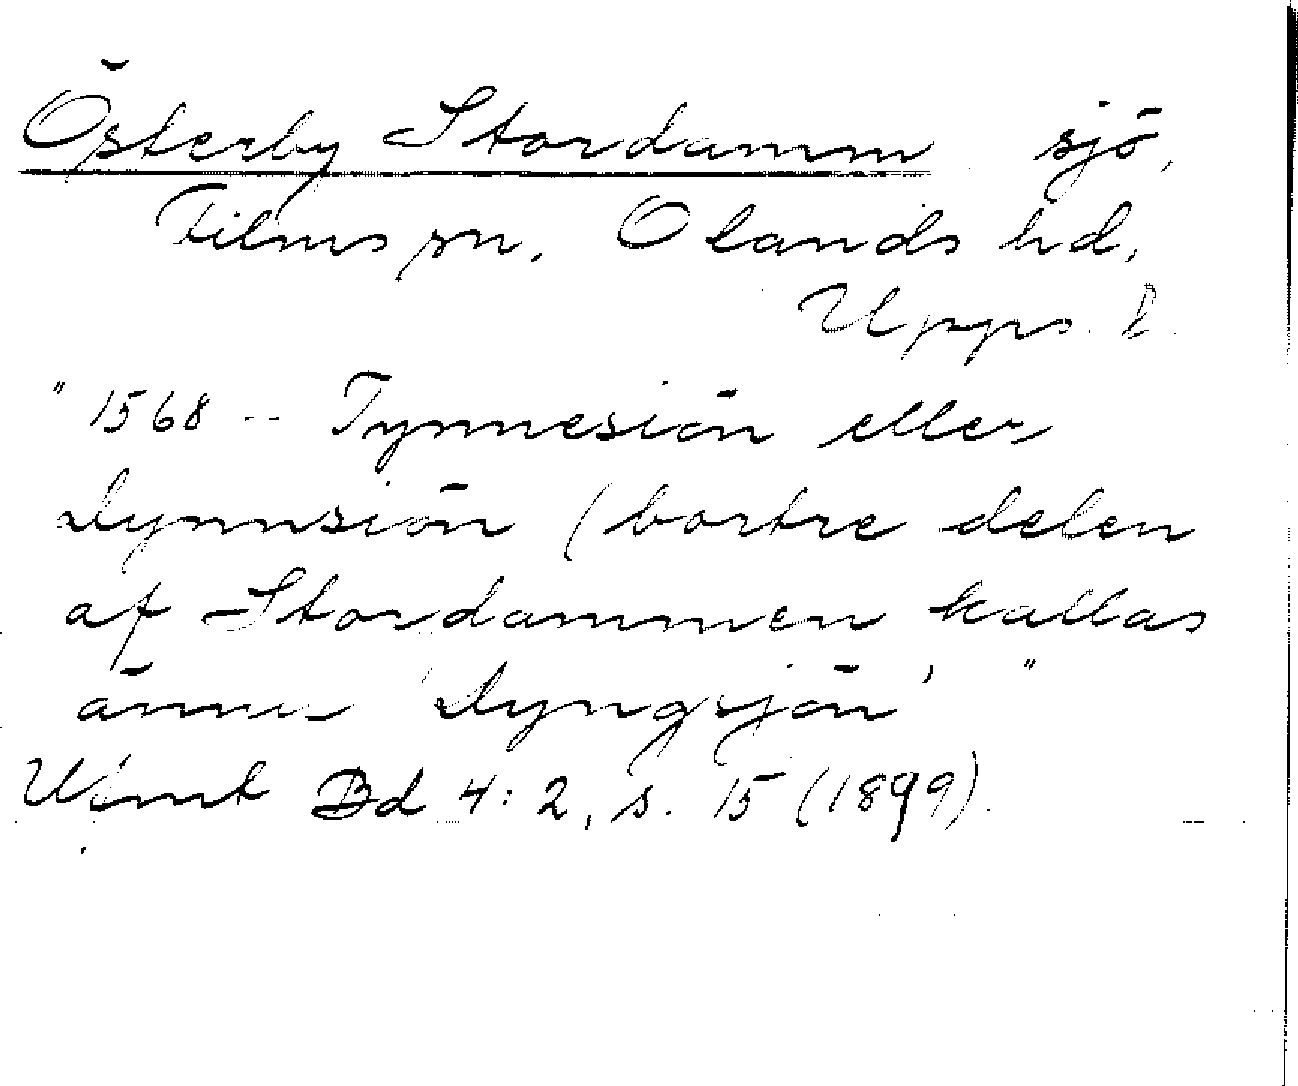 Österby Stordamm sjö,
Films sn, Olands hd,
Upps. l.
"1568 -- Tynnesiön eller
Dynnsiön (bortre delen
af Stordammen kallas
ännu 'Dyngsjön'"
Bd 4:2, s. 15 (1899).